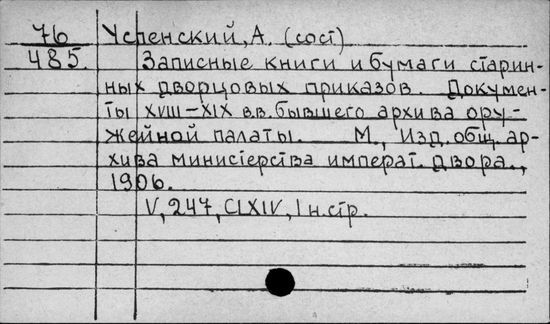 76 Успенский, А. (сост)
485. Записные книги и бумаги старин-
ных дворцовых приказов. Докумен-
ты XVIII-XIX в.в. бывшего архива ору-
жейной палаты. М., Изд. общ. ар-
хива министерства императ. двора.,
1906.
V, 247, CLXIV, 1 н. стр.